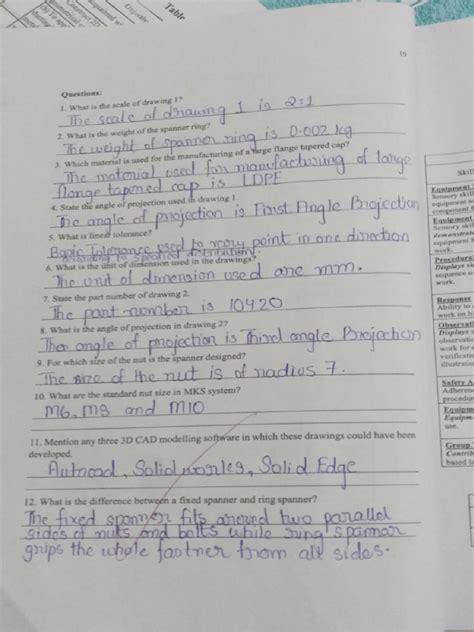 Table
19
Questions:
1. What is the scale of drawing 1?
The scale of drawing 1 is 2:1
2. What is the weight of the spanner ring?
The weight of spanner ring is 0.002 kg
3. Which material is used for the manufacturing of a large flange tapered cap?
The material used for manufacturing of large
flange tapered cap is LDPE
4. State the angle of projection used in drawing 1.
The angle of projection is First Angle Projection
5. What is lined tolerance?
Basic Tolerance used to vary point in one direction
according to specified distribution
6. What is the unit of dimension used in the drawings?
The unit of dimension used are mm.
7. State the part number of drawing 2.
The part number is 10420
8. What is the angle of projection in drawing 2?
The angle of projection is Third angle Projection
9. For which size of the nut is the spanner designed?
The size of the nut is of radius 7.
10. What are the standard nut size in MKS system?
M6, M8 and M10
11. Mention any three 3D CAD modelling software in which these drawings could have been
developed.
Autocad, Solidworks, Solid Edge
12. What is the difference between a fixed spanner and ring spanner?
The fixed spanner fits around two parallel
sides of nuts and bolts while ring spannar
grips the whole fastner from all sides.
Skill
Equipment
Sensory skill
equipment
Equipment
Sensory skill
equipment
work.
Procedure
Displays
sequence
work.
Response
Ability to
work on
Displays
work for
verification
illustration
Safety
Adherence
procedure
Equipment
use.
Group
based